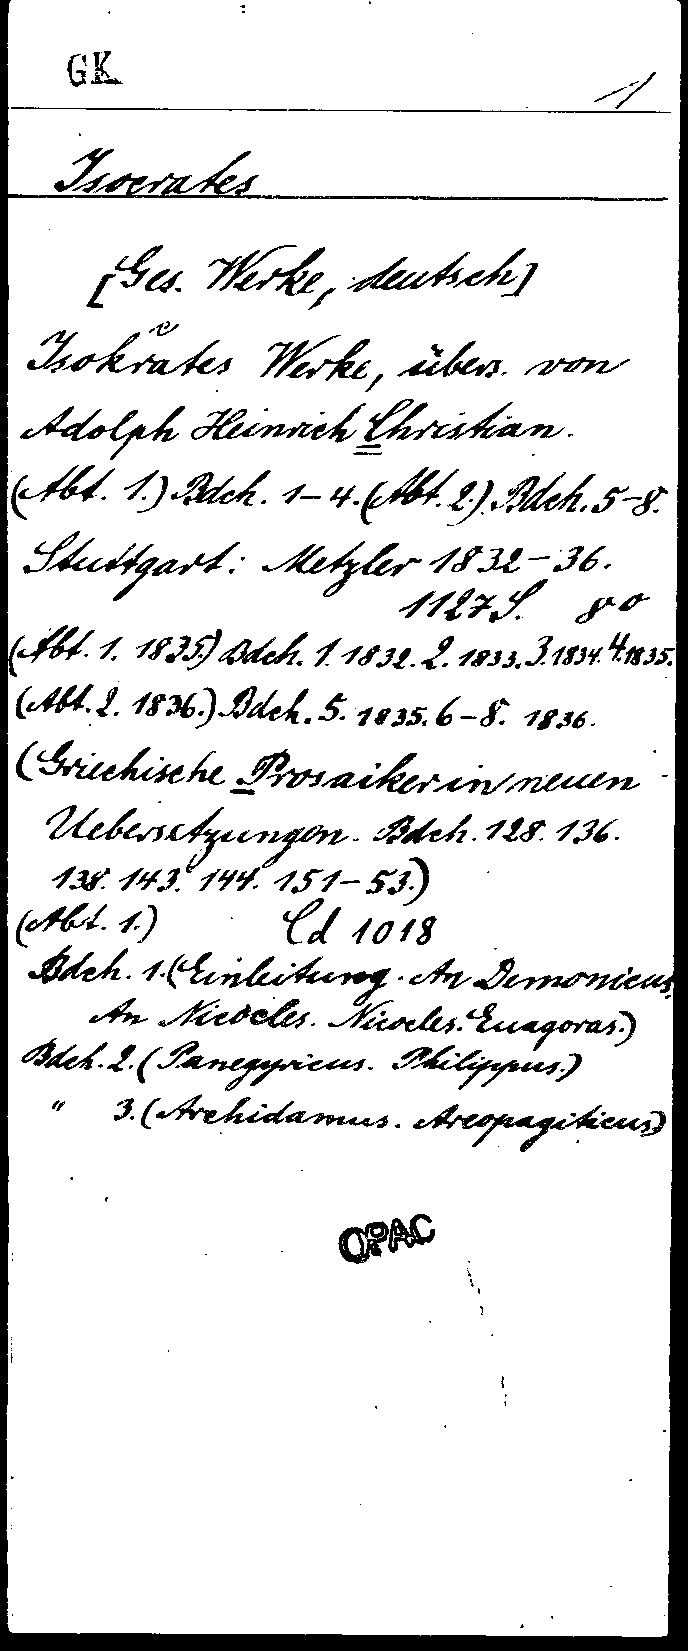 GK
1
Isocrates
[Ges. Werke, deutsch]
c
Isokrates Werke, übers. von
Adolph Heinrich Christian.
(Abt. 1.) Bdch. 1-4. (Abt. 2.) Bdch. 5-8.
Stuttgart: Metzler 1832-36.
1127 S. 8°
(Abt. 1. 1835.) Bdch. 1. 1832. 2. 1833. 3. 1834. 4. 1835.
(Abt. 2. 1836.) Bdch. 5. 1835. 6-8. 1836.
(Griechische Prosaiker in neuen
Uebersetzungen. Bdch. 128. 136.
138. 143. 144. 151-53.)
(Abt. 1.) Cd 1018
Bdch. 1. (Einleitung. An Demonicus.
An Nicocles. Nicocles. Euagoras.)
Bdch. 2. (Panegyricus. Philippus.)
" 3. (Archidamus. Areopagiticus.)
OPAC